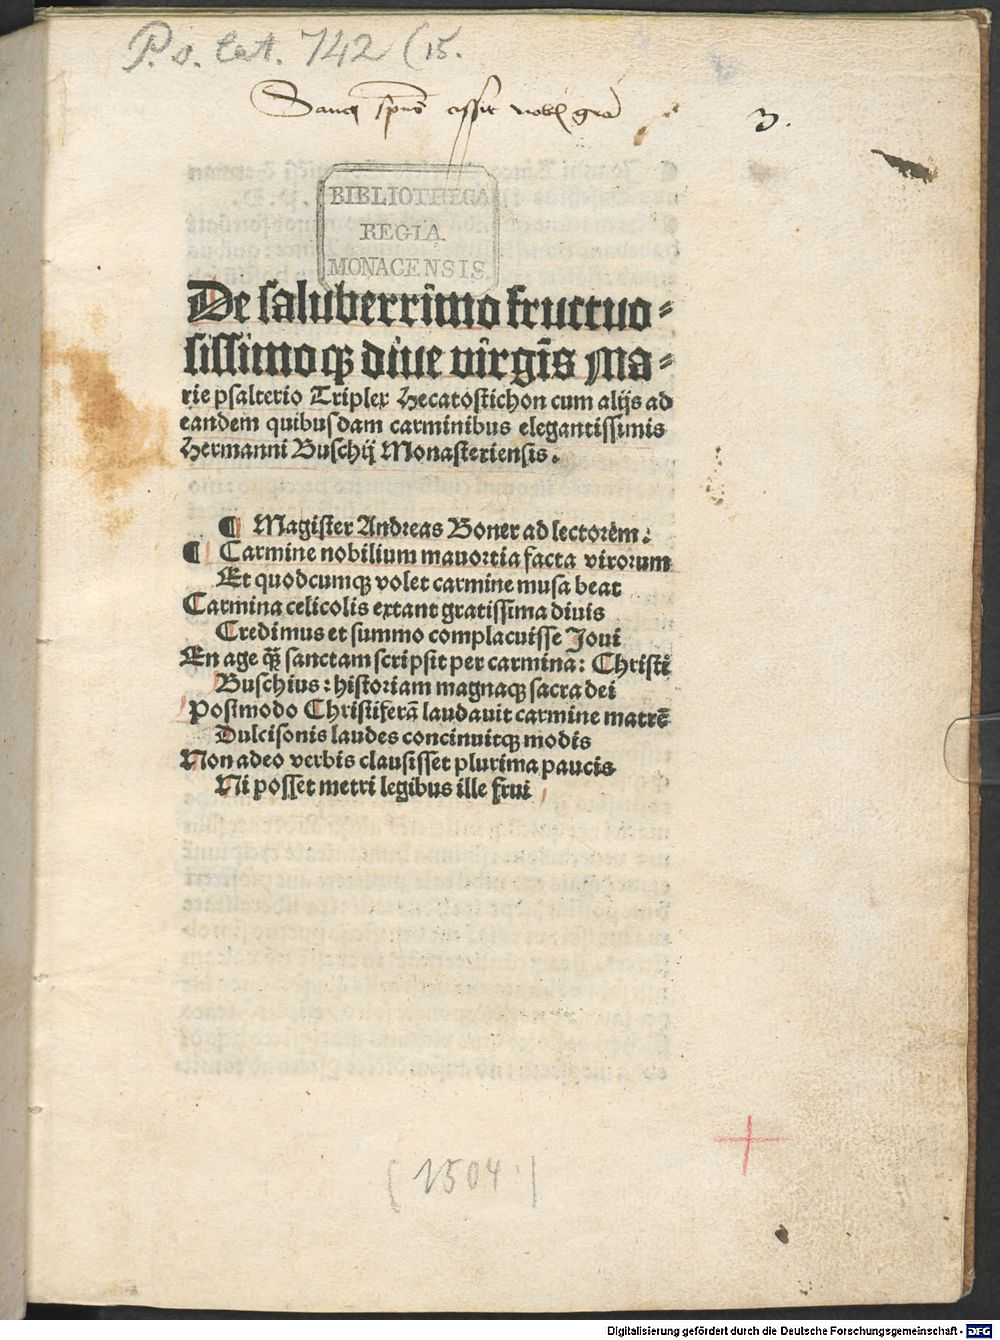 P. o. lat. 742 (15.
Sancti sp̄ns assit nob̄ gr̄a
3.
BIBLIOTHECA
REGIA
MONACENSIS.
De saluberrimo fructuo⸗
sissimoqꝫ diue virgĩs Ma⸗
rie psalterio Triplex Hecatostichon cum alijs ad
eandem quibusdam carminibus elegantissimis
Hermanni Buschij Monasteriensis.
¶ Magister Andreas Boner ad lectorem:
¶ Carmine nobilium mauortia facta virorum
Et quodcumqꝫ volet carmine musa beat
Carmina celicolis extant gratissima diuis
Credimus et summo complacuisse Joui
En age qꝫ̃ sanctam scripsit per carmina: Christi
Buschius: historiam magnaqꝫ sacra dei
Postmodo Christiferã laudauit carmine matrẽ
Dulcisonis laudes concinuitqꝫ modis
Non adeo verbis clausisset plurima paucis
Ni posset metri legibus ille frui
(1504.)
Digitalisierung gefördert durch die Deutsche Forschungsgemeinschaft - DFG